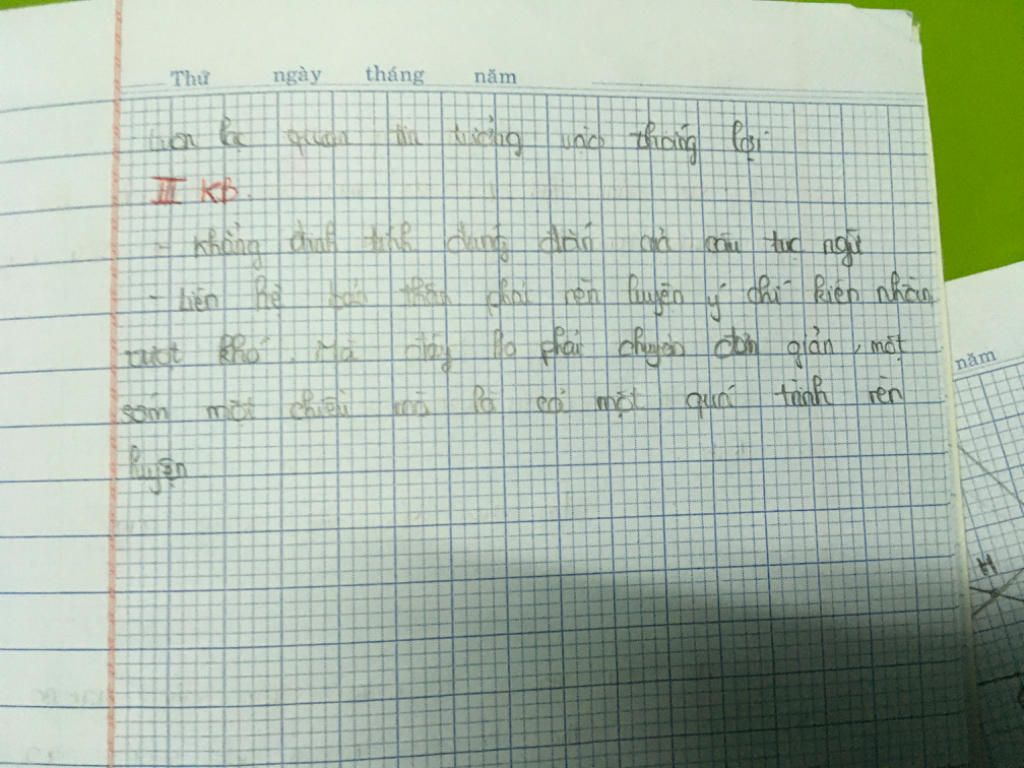 Thứ ngày tháng năm
lạc quan tin tưởng vào thắng lợi
III KB.
- Khẳng định tính đúng đắn câu tục ngữ
- Liên hệ bản thân phải rèn luyện ý chí kiên nhẫn
vượt khó. Mà đây phải chuyện đơn giản, một
sớm một chiều mà là cả một quá trình rèn
luyện
năm
H